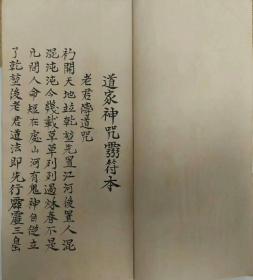 道家神咒灵符本
老君隐道咒
初開天地立乾堃先置江河後置人混
混沌沌今幾載草草列列過秋春不是
凡間人命短在處山河有鬼神自從立
了乾堃後老君道法即先行霹靂三島